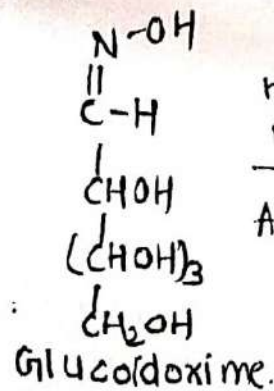 N-OH
||
C-H
|
CHOH
|
(CHOH)₃
|
CH₂OH
Glucoldoxime